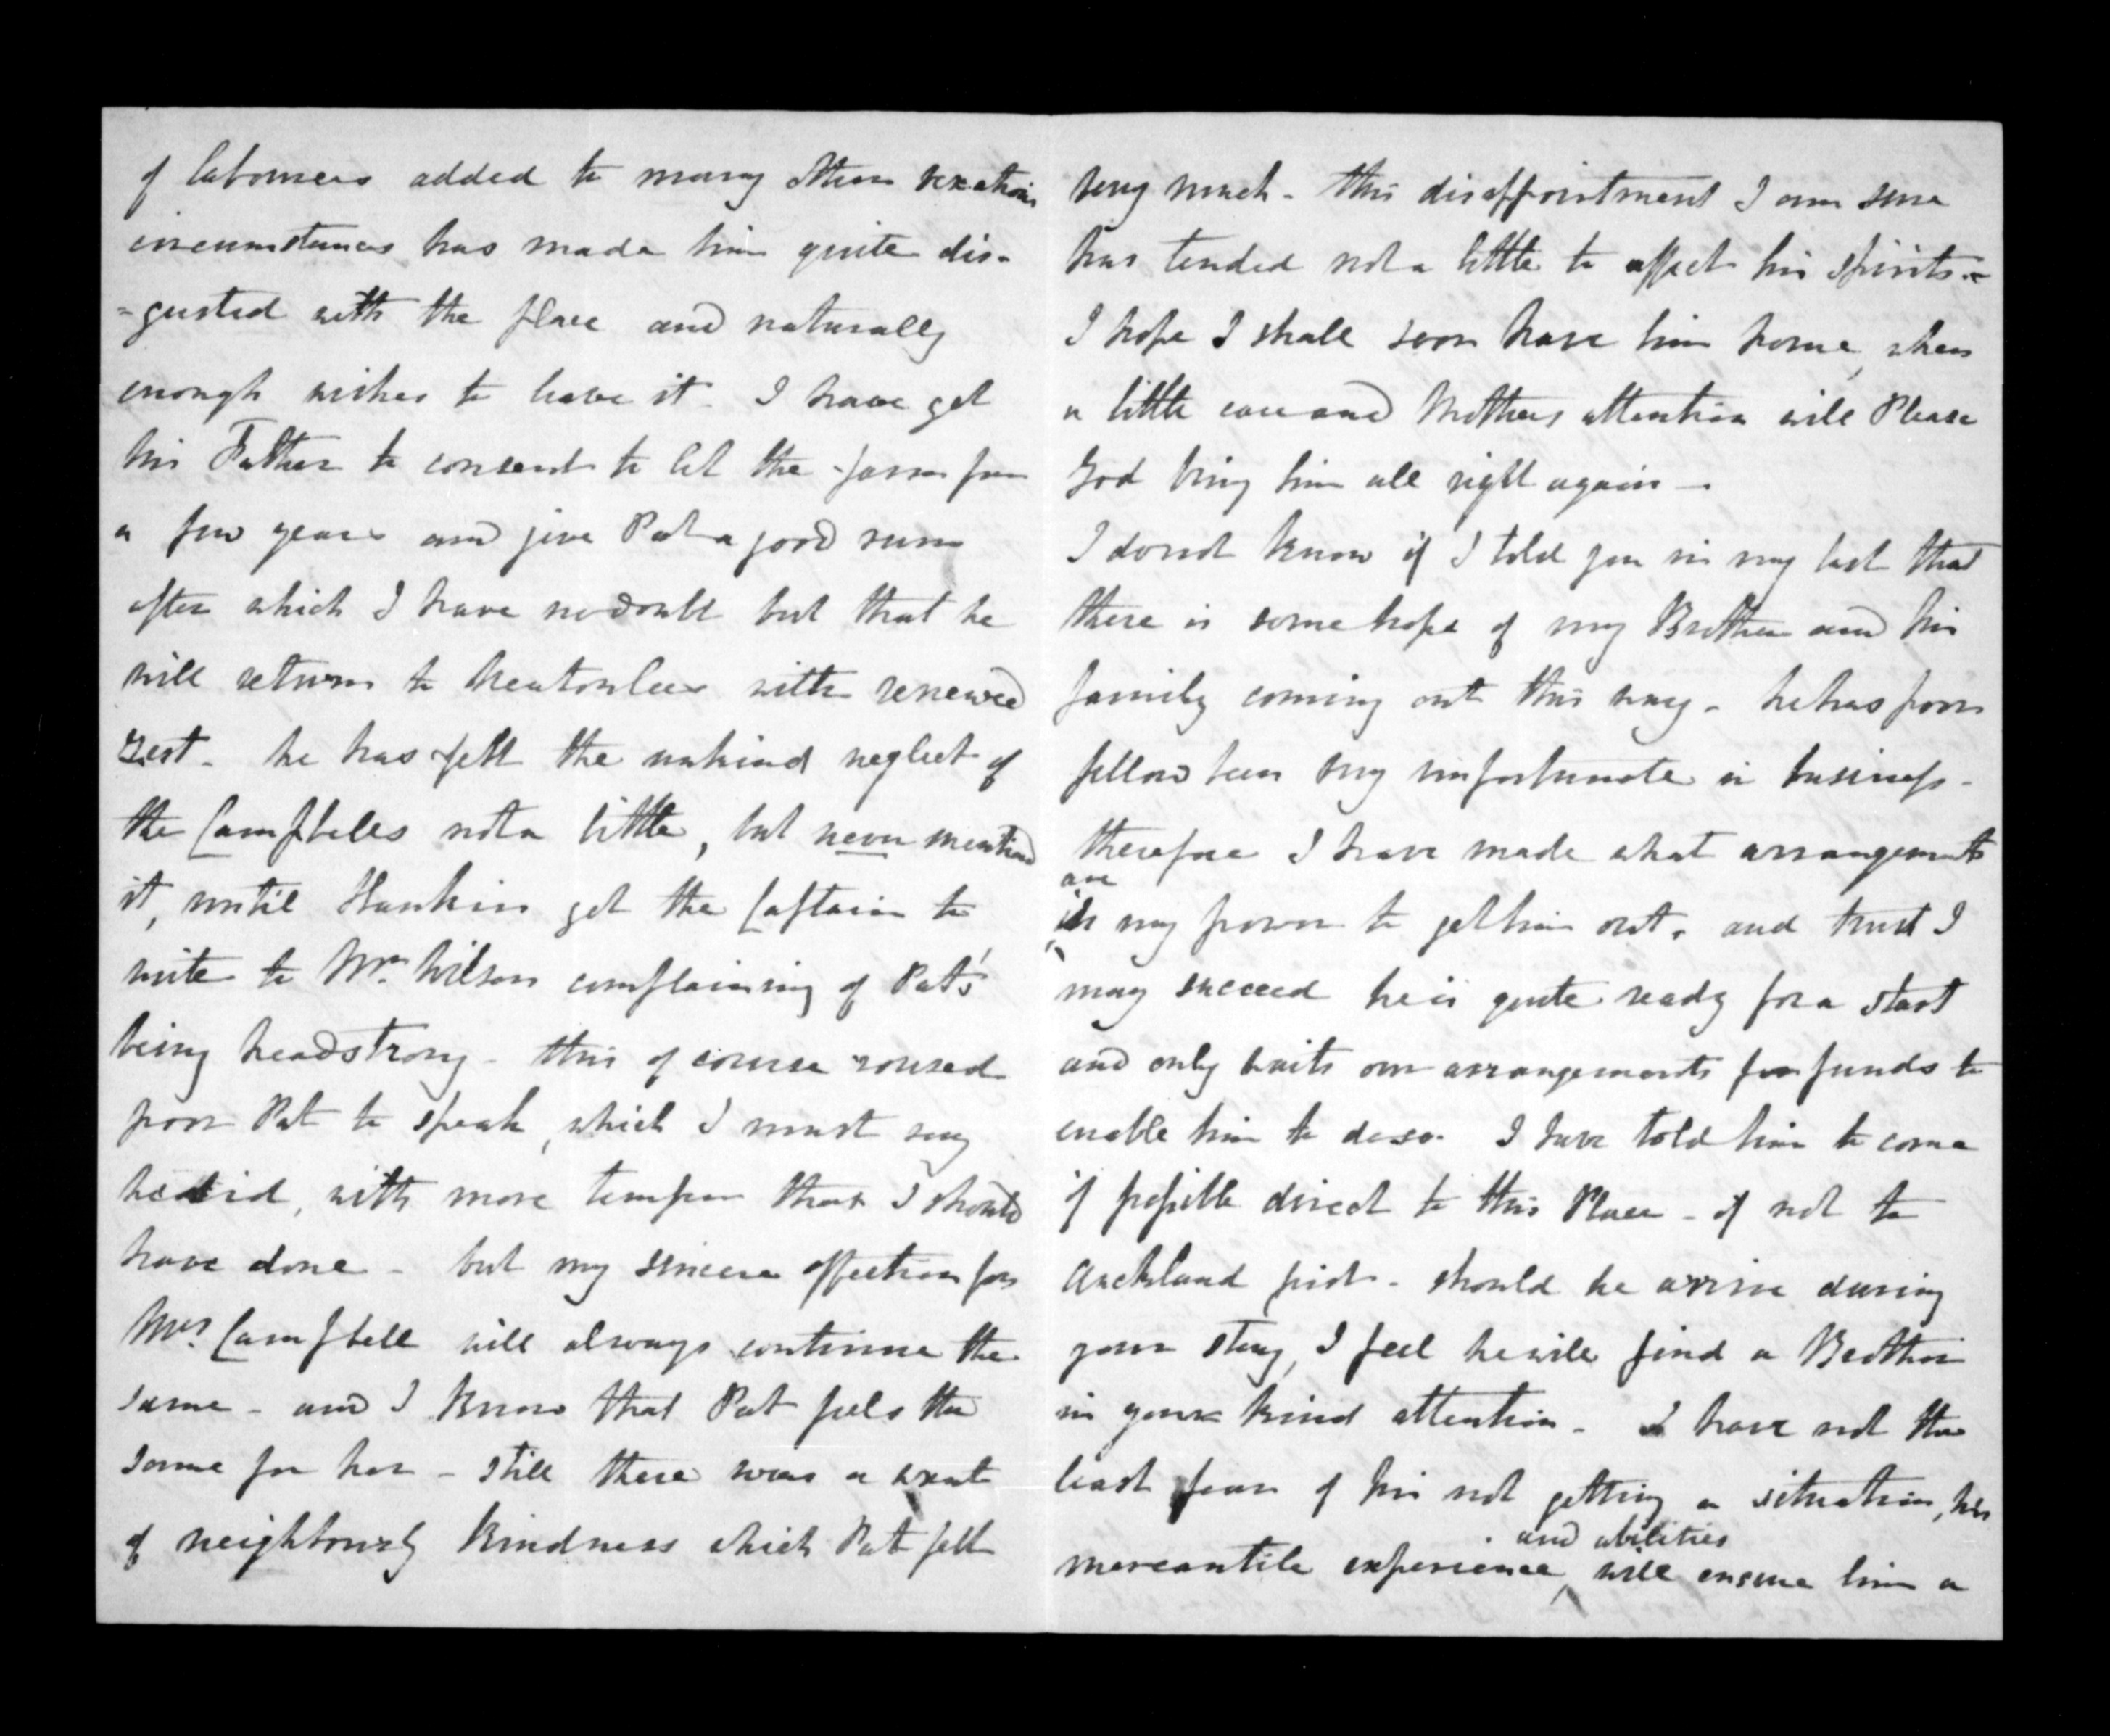 of labourers added to many other vexations
circumstances has made him quite dis-
=gusted with the place and naturally
enough wishes to leave it. I have got
his Father to consent to let the farm for
a few years and give Pat a good run
after which I have no doubt but that he
will return to with renewed
zest - he has felt the unkind neglect of
the Campbells not a little, but never mentioned
it, until got the Captain to
write to Mr. Wilson complaining of Pat's
being headstrong - this of course roused
poor Pat to speak, which I must say
he did, with more temper than I should
have done - but my sincere affection for
Mrs. Campbell will always continue the
same - and I know that Pat feels the
same for her - still there was a want
of neighbourly kindness which Pat felt
very much - this disappointment I am sure
has tended not a little to affect his spirits -
I hope I shall soon have him home, when
a little care and Mothers attention will Please
God bring him all right again -
I do not know if I told you in my last that
there is some hope of my Brother and his
family coming out this way - he has poor
fellow been very unfortunate in business -
therefore I have made what arrangements
are
in my power to get him out, and trust I
may succeed he is quite ready for a start
and only waits our arrangements for funds to
enable him to do so. I have told him to come
if possible direct to this Place - if not to
Auckland first - should he arrive during
your stay, I feel he will find a Brother
in your kind attention - I have not the
least fear of his not getting a situation, his
and abilities
mercantile experience, will ensure him a